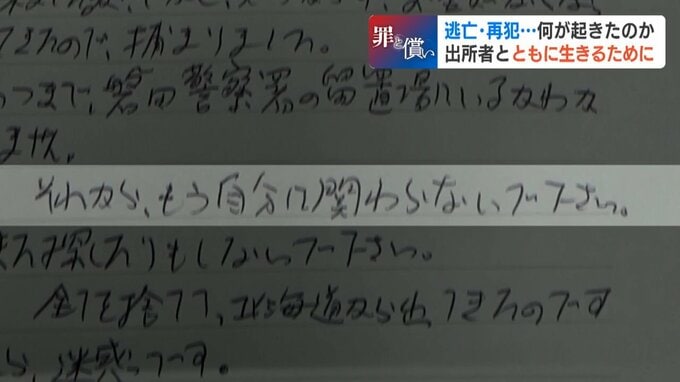 罪と償い
逃亡・再犯…何が起きたのか
出所者とともに生きるために
てきたので、捕まりました。
つまで、磐田警察署の留置場にいるかわか
ません。
それから、もう自分に関わらないで下さい。
探したりもしないで下さい。
全てを捨てて、北海道から出てきたのです
ら、迷惑です。